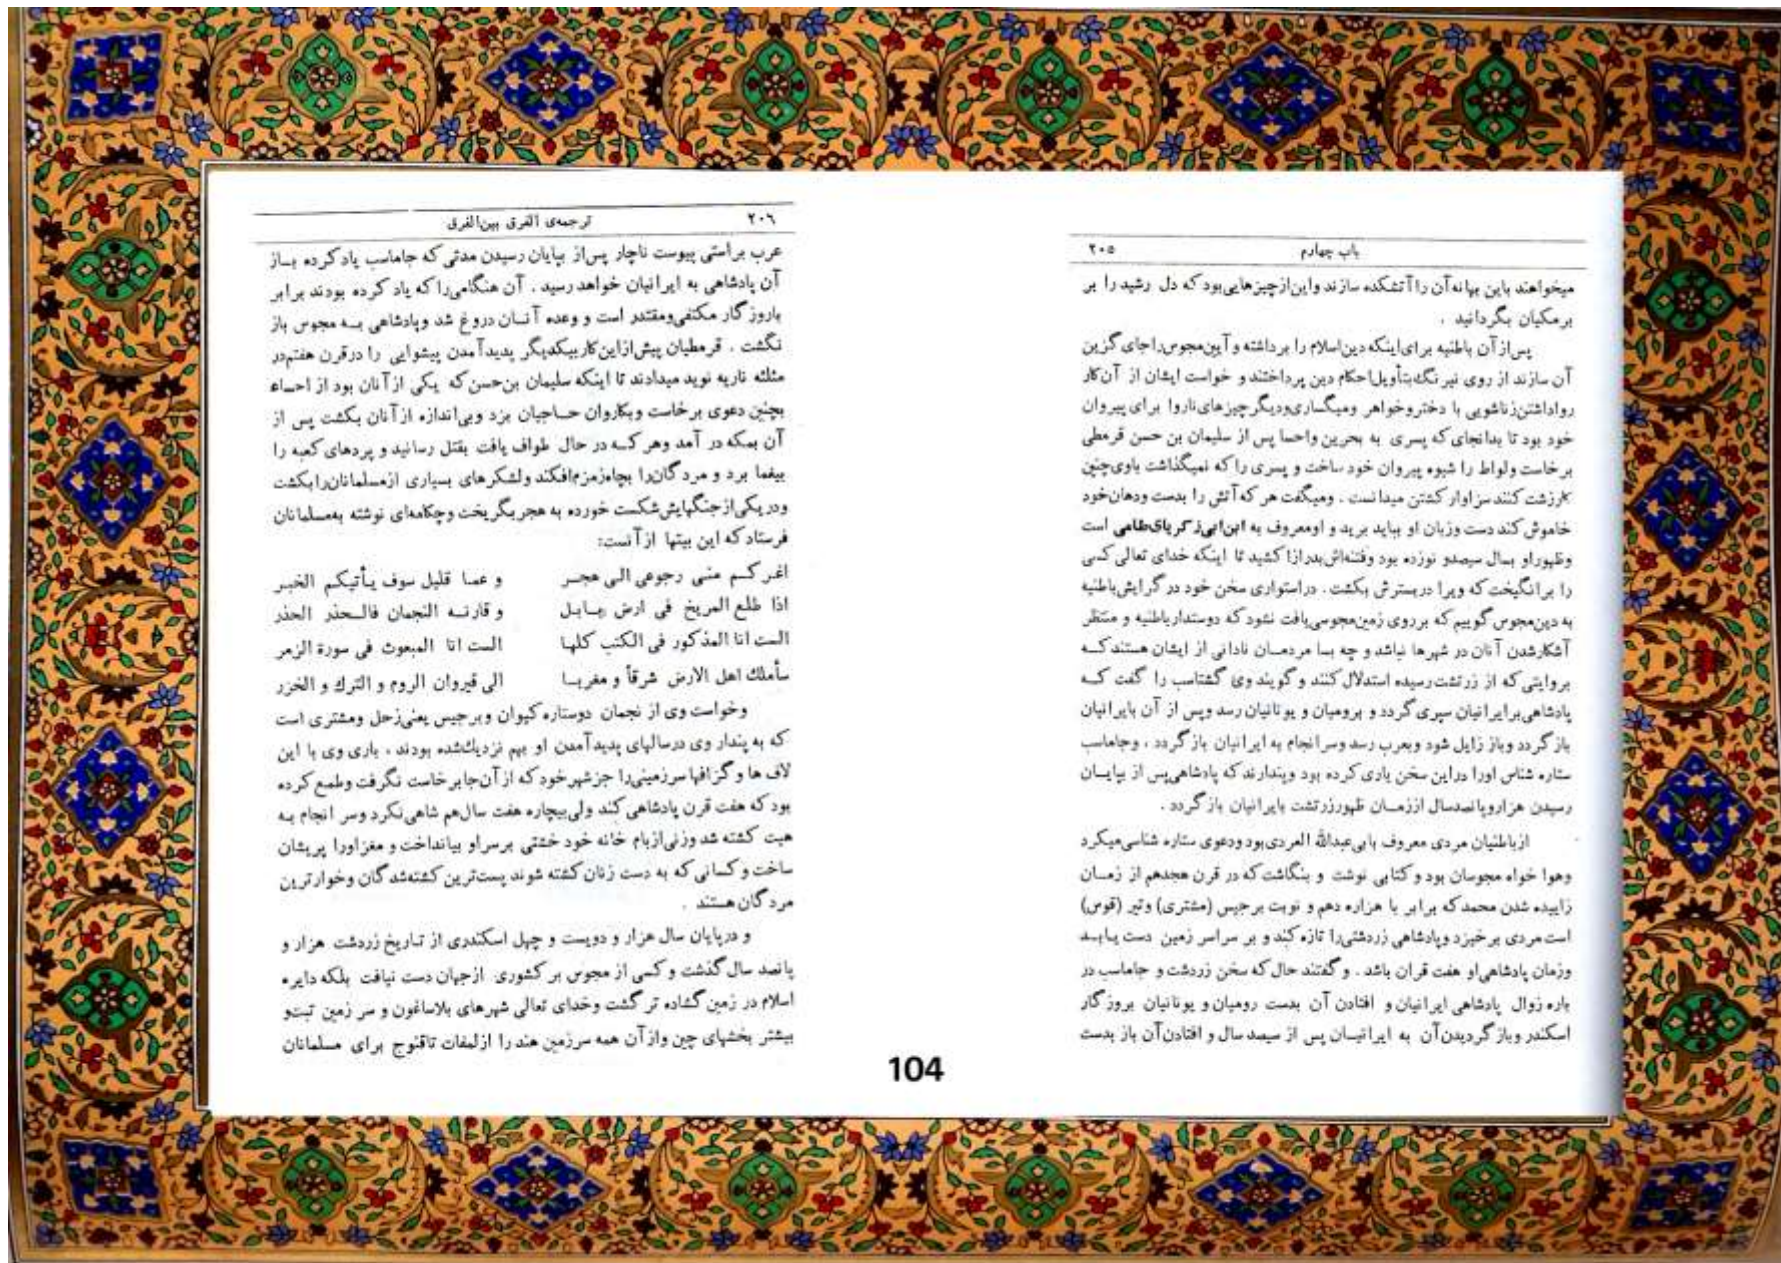 باب چهارم ۲۰۵
میخواهند باین بهانه آن را آتشکده سازند واین از چیزهایی بود که دل رشید را بر
برمکیان بگردانید .
پس از آن باطنیه برای اینکه دین اسلام را برداشته و آیین مجوس را جای گزین
آن سازند از روی نیرنگ بتأویل احکام دین پرداختند و خواست ایشان از آن کار
رواداشتن زناشویی با دختر وخواهر ومیگساری ودیگر چیزهای ناروا برای پیروان
خود بود تا بدانجای که پسری به بحرین واحسا پس از سلیمان بن حسن قرمطی
برخاست ولواط را شیوه پیروان خود ساخت و پسری را که نمیگذاشت باوی چنین
کارزشت کنند سزاوار کشتن میدانست . ومیگفت هر که آتش را بدست ودهان خود
خاموش کند دست وزبان او بباید برید و او معروف به ابن ابی زکریای طامی است
وظهور او بسال سیصدو نوزده بود وفتنه‌اش بدرازا کشید تا اینکه خدای تعالی کسی
را برانگیخت که ویرا دربسترش بکشت . در استواری سخن خود در گرایش باطنیه
به دین مجوس گوییم که بر روی زمین مجوسی یافت نشود که دوستدار باطنیه و منتظر
آشکارشدن آنان در شهرها نباشد و چه بسا مردمان نادانی از ایشان هستند که
بروایتی که از زرتشت رسیده استدلال کنند و گویند وی گشتاسب را گفت که
پادشاهی بر ایرانیان سپری گردد و برومیان و یونانیان رسد وپس از آن بایرانیان
باز گردد وباز زایل شود وبعرب رسد وسرانجام به ایرانیان باز گردد ، وجاماسب
ستاره شناس اورا دراین سخن یاری کرده بود وپندارند که پادشاهی پس از بپایان
رسیدن هزار وپانصدسال اززمان ظهور زرتشت بایرانیان باز گردد .
ازباطنیان مردی معروف بابی عبدالله العردی بود ودعوی ستاره شناسی میکرد
وهوا خواه مجوسان بود و کتابی نوشت و بنگاشت که در قرن هجدهم از زمان
زاییده شدن محمد که برابر با هزاره دهم و نوبت برجیس (مشتری) وتیر (قوس)
است مردی برخیزد وپادشاهی زردشتی را تازه کند و بر سراسر زمین دست یابد
وزمان پادشاهی او هفت قران باشد . و گفتند حال که سخن زردشت و جاماسب در
باره زوال پادشاهی ایرانیان و افتادن آن بدست رومیان و یونانیان بروز گار
اسکندر وباز گردیدن آن به ایرانیان پس از سیصد سال و افتادن آن باز بدست
۲۰۶ ترجمه‌ی الفرق بین‌الفرق
عرب براستی پیوست ناچار پس از بپایان رسیدن مدتی که جاماسب یاد کرده باز
آن پادشاهی به ایرانیان خواهد رسید . آن هنگامی را که یاد کرده بودند برابر
باروز گار مکتفی ومقتدر است و وعده آنان دروغ شد وپادشاهی به مجوس باز
نگشت . قرمطیان پیش ازاین کار بیکدیگر پدید آمدن پیشوایی را درقرن هفتم در
مثلثه ناریه نوید میدادند تا اینکه سلیمان بن حسن که یکی از آنان بود از احساء
بچنین دعوی برخاست وبکاروان حاجیان بزد وبی‌اندازه از آنان بکشت پس از
آن بمکه در آمد وهر که در حال طواف یافت بقتل رسانید و پردهای کعبه را
بیغما برد و مرد گان را بچاه زمزم افکند ولشکرهای بسیاری ازمسلمانان را بکشت
ودر یکی از جنگهایش شکست خورده به هجر بگریخت وچکامه‌ای نوشته به مسلمانان
فرستاد که این بیتها از آنست:
اغر کم منی رجوعی الی هجر و عما قلیل سوف یأتیکم الخبر
اذا طلع المریخ فی ارض بابل و قارنه النجمان فالحذر الحذر
الست انا المذکور فی الکتب کلها الست انا المبعوث فی سورة الزمر
سأملك اهل الارض شرقاً و مغربا الی قیروان الروم و الترك و الخزر
وخواست وی از نجمان دوستاره کیوان وبرجیس یعنی زحل ومشتری است
که به پندار وی درسالهای پدید آمدن او بهم نزدیك شده بودند ، باری وی با این
لاف ها و گزافها سرزمینی را جز شهر خود که از آن جا برخاست نگرفت وطمع کرده
بود که هفت قرن پادشاهی کند ولی بیچاره هفت سال هم شاهی نکرد وسر انجام به
هیت کشته شد وزنی از بام خانه خود خشتی برسر او بیانداخت و مغز اورا پریشان
ساخت و کسانی که به دست زنان کشته شوند پست‌ترین کشته‌شد گان وخوارترین
مرد گان هستند .
و درپایان سال هزار و دویست و چهل اسکندری از تاریخ زردشت هزار و
پانصد سال گذشت و کسی از مجوس بر کشوری ازجهان دست نیافت بلکه دایره
اسلام در زمین گشاده تر گشت وخدای تعالی شهرهای بلاساغون و سر زمین تبت و
بیشتر بخشهای چین واز آن همه سرزمین هند را ازلمفات تاقنوج برای مسلمانان
104